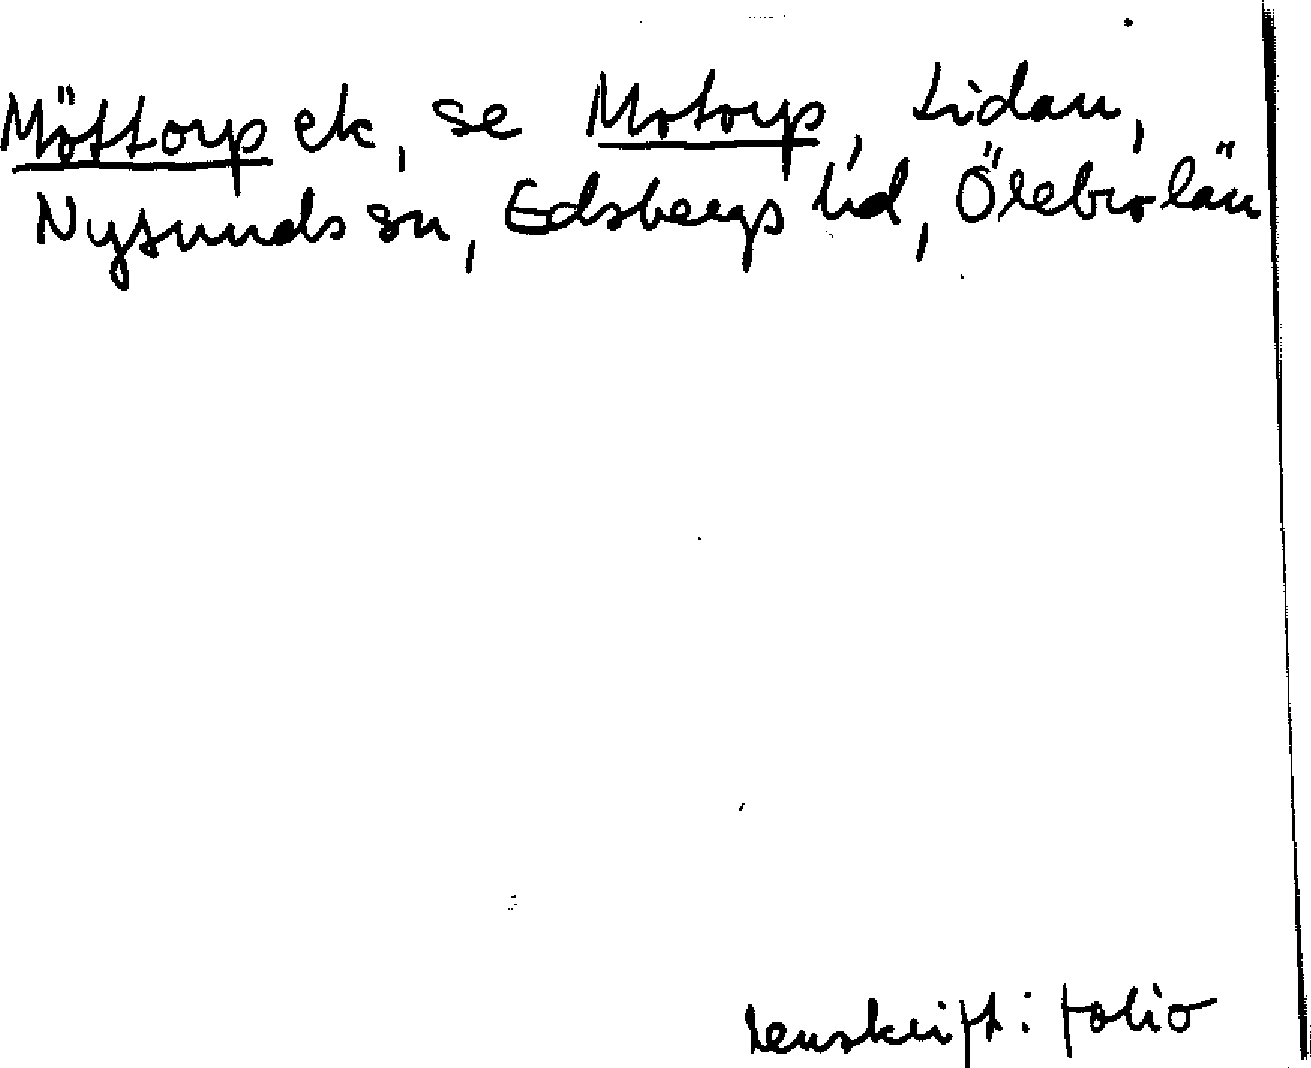 Möttorp ek, se Motorp, Lidan,
Nysunds sn, Edsbergs hd, Örebro län
renskrift: folio